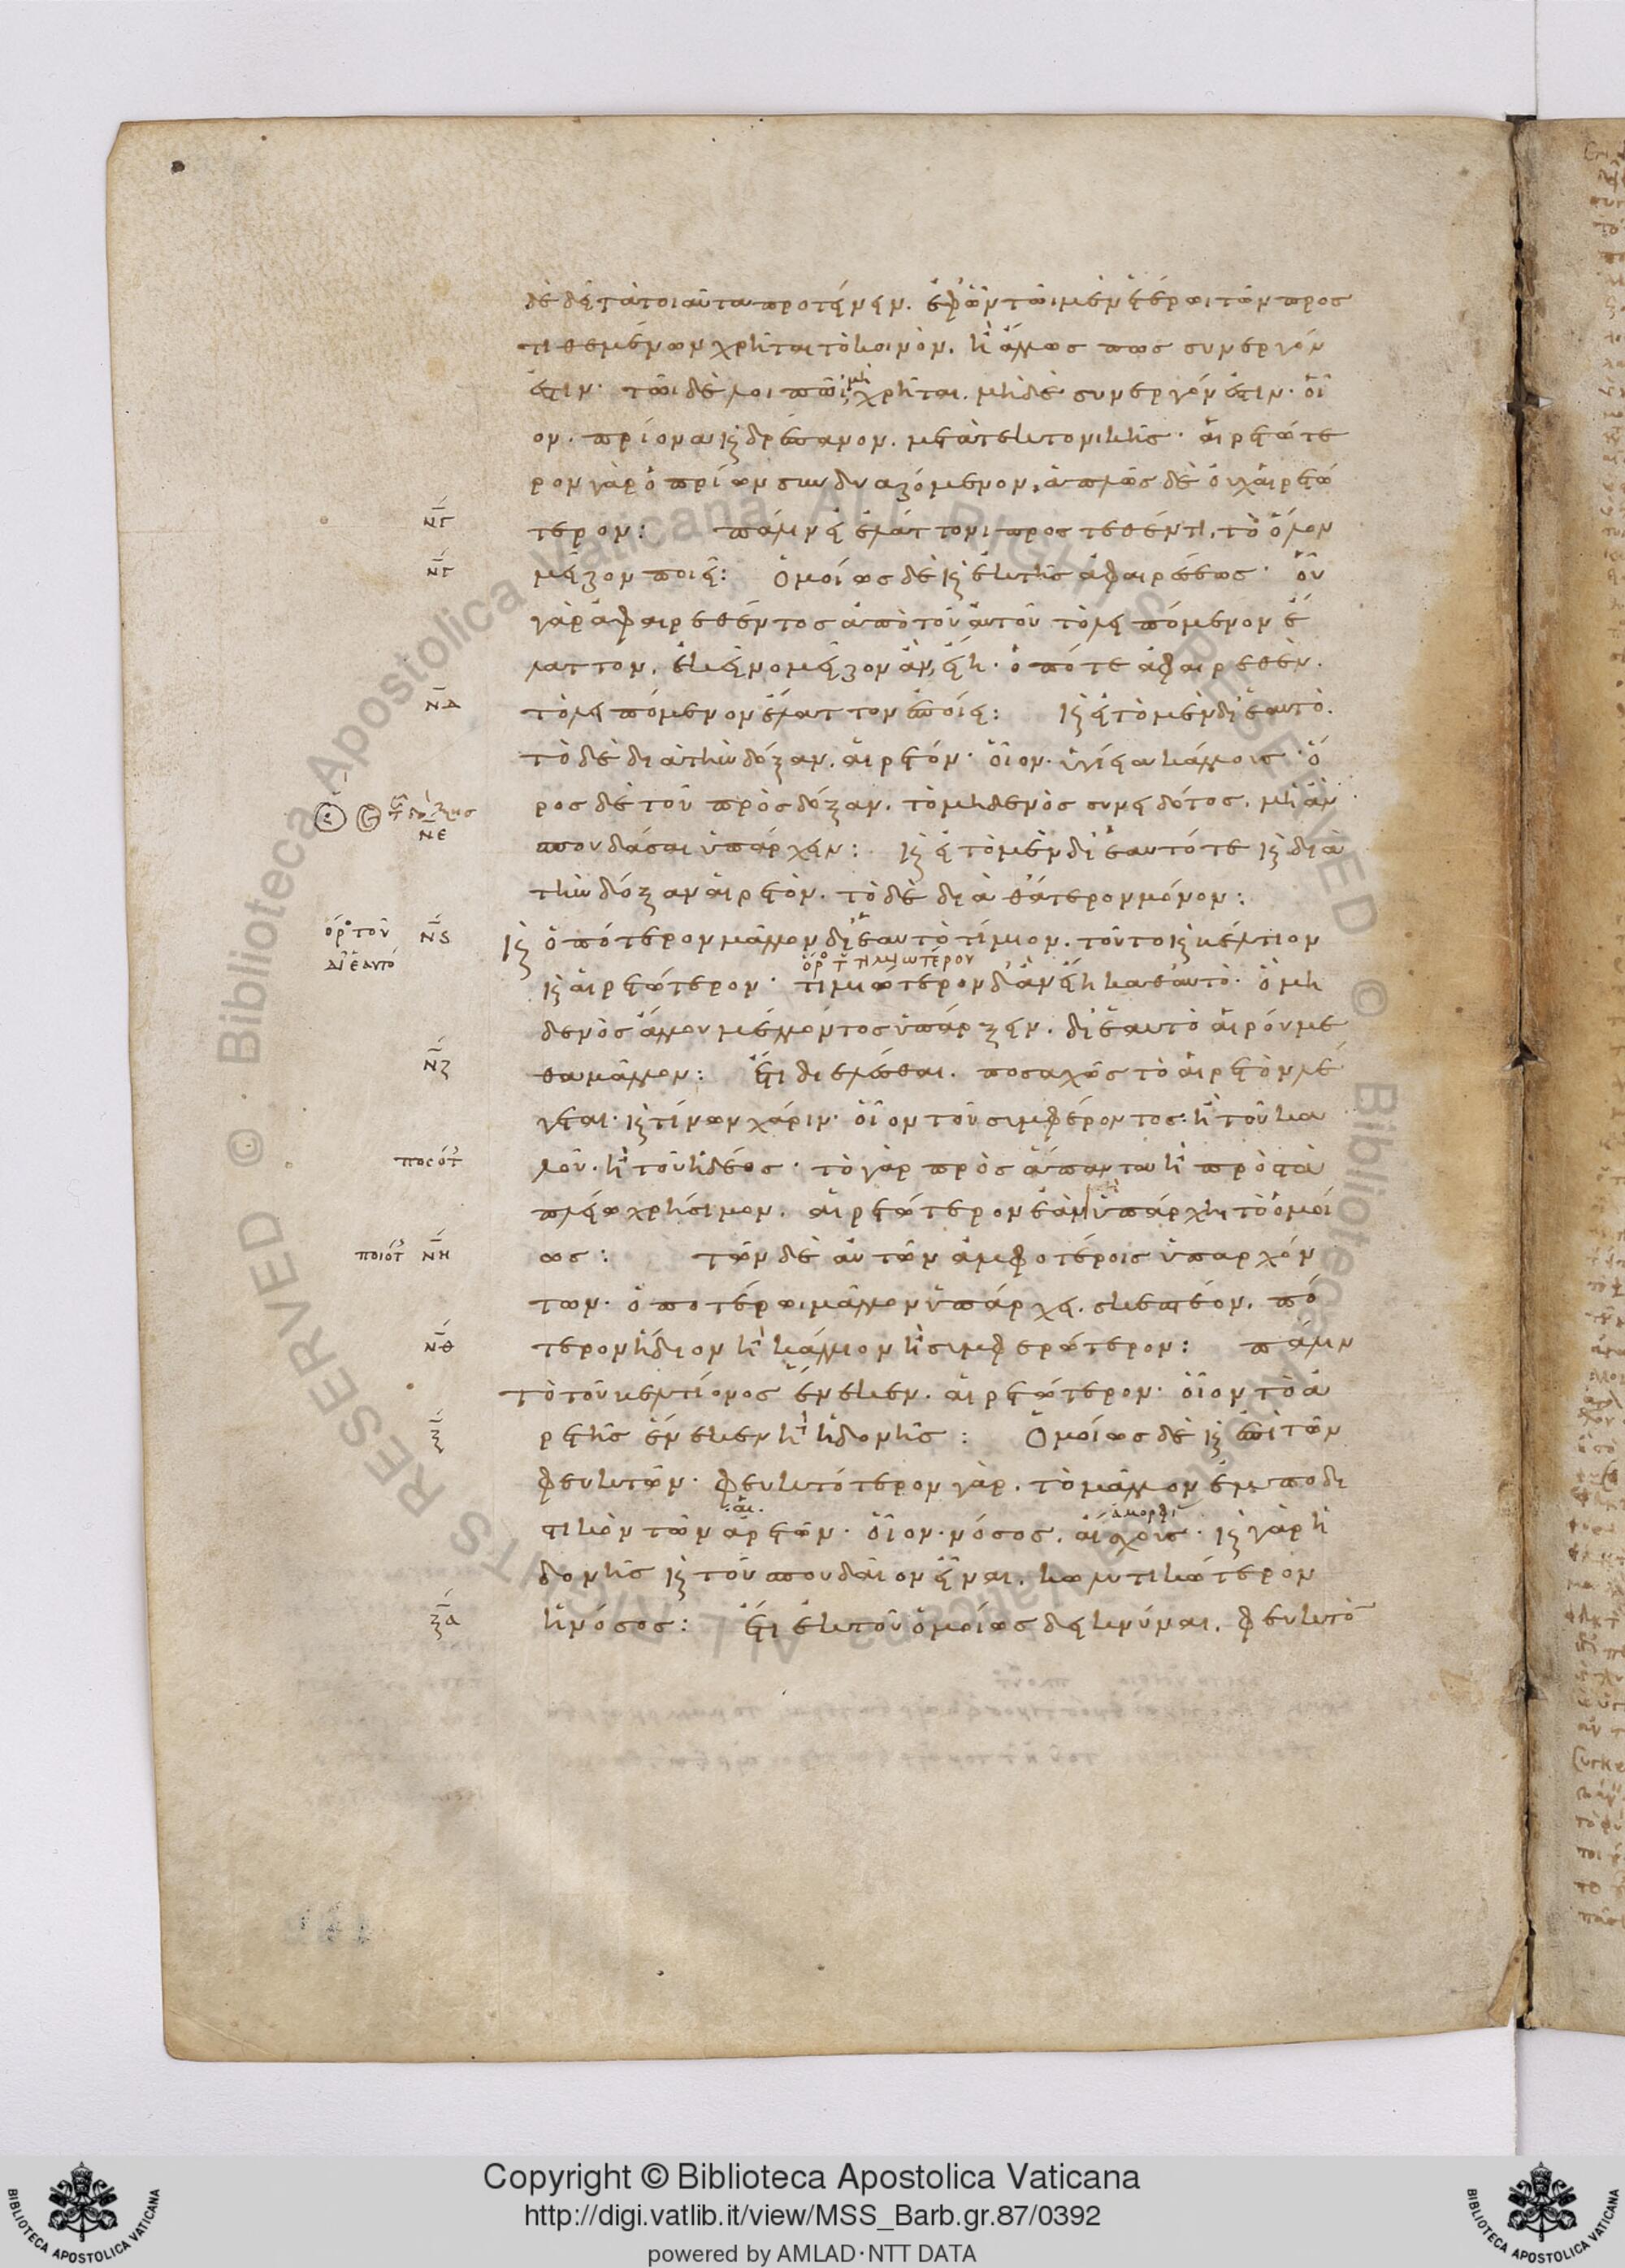 δὲ δεῖ τὰ τοιαῦτα προτείνειν. ἐφ' ὧν τῶι μὲν ἑτέρωι τῶν προσ
τιθεμένων χρῆται τὸ κοινὸν. ἢ ἄλλως πως συνεργόν
ἐστιν· τῶι δὲ λοιπῶι μὴ χρῆται. μηδὲ συνεργόν ἐστιν· οἷ
ον. πρίονα καὶ δρέπανον. μετὰ τεκτονικῆς· αἱρετώτε
ρον γὰρ ὁ πρίων συνδυαζόμενον, ἁπλῶς δὲ οὐχ αἱρετώ
τερον: πάλιν εἰ ἐλάττονι προστεθέν τι, τὸ ὅλον
μεῖζον ποιεῖ: Ὁμοίως δὲ καὶ ἐκ τῆς ἀφαιρέσεως· οὗ
γὰρ ἀφαιρεθέντος ἀπὸ τοῦ αὐτοῦ τὸ λειπόμενον ἔ
λαττον, ἐκεῖνο μεῖζον ἂν εἴη· ὁπότε ἀφαιρεθὲν.
τὸ λειπόμενον ἔλαττον ἐποίει: καὶ εἰ τὸ μὲν δι' ἑαυτὸ.
τὸ δὲ διὰ τὴν δόξαν. αἱρετόν· οἷον. ὑγίεια κάλλους· ὅ
ρος δὲ τοῦ πρὸς δόξαν. τὸ μηδενὸς συνειδότος. μὴ ἂν
σπουδάσαι ὑπάρχειν: καὶ εἰ τὸ μὲν δι' ἑαυτό τε καὶ διὰ
τὴν δόξαν αἱρετὸν. τὸ δὲ διὰ θάτερον μόνον:
καὶ ὁπότερον μᾶλλον δι' ἑαυτὸ τίμιον. τοῦτο καὶ βέλτιον
καὶ αἱρετώτερον· τιμιώτερον δ' ἂν εἴη καθ' αὑτὸ· ὃ μη
δενὸς ἄλλου μέλλοντος ὑπάρξειν. δι' ἑαυτὸ αἱρούμε
θα μᾶλλον: ἔτι διελέσθαι. ποσαχῶς τὸ αἱρετὸν λέ
γεται· καὶ τίνων χάριν· οἷον τοῦ συμφέροντος· ἢ τοῦ κα
λοῦ. ἢ τοῦ ἡδέος· τὸ γὰρ πρὸς ἅπαντα ἢ πρὸς τὰ
πλείω χρήσιμον. αἱρετώτερον ἐὰν ὑπάρχηι τὸ ὁμοί
ως: τῶν δὲ αὐτῶν ἀμφοτέροις ὑπαρχόν
των. ὁποτέρωι μᾶλλον ὑπάρχει. σκεπτέον. πό
τερον ἥδιον ἢ κάλλιον ἢ συμφερώτερον: πάλιν
τὸ τοῦ βελτίονος ἕνεκεν. αἱρετώτερον· οἷον τὸ ἀ
ρετῆς ἕνεκεν ἢ ἡδονῆς: Ὁμοίως δὲ καὶ ἐπὶ τῶν
φευκτῶν· φευκτότερον γὰρ. τὸ μᾶλλον ἐμποδι
στικὸν τῶν αἱρετῶν· οἷον. νόσος. αἴσχους· καὶ γὰρ ἡ
δονῆς καὶ τοῦ σπουδαῖον εἶναι. κωλυτικώτερον
ἡ νόσος: ἔτι ἐκ τοῦ ὁμοίως δεικνύναι. φευκτὸ
νγ
νγ
νδ
νε
ὅρος τοῦ
δι' ἑαυτό
νς
ὅρος τοῦ τιμιωτέρου
νζ
ποσότ
ποιότ νη
νθ
ξ
αἱ
ἀμορφί
ξα
Copyright © Biblioteca Apostolica Vaticana
http://digi.vatlib.it/view/MSS_Barb.gr.87/0392
powered by AMLAD·NTT DATA
BIBLIOTECA APOSTOLICA VATICANA
BIBLIOTECA APOSTOLICA VATICANA